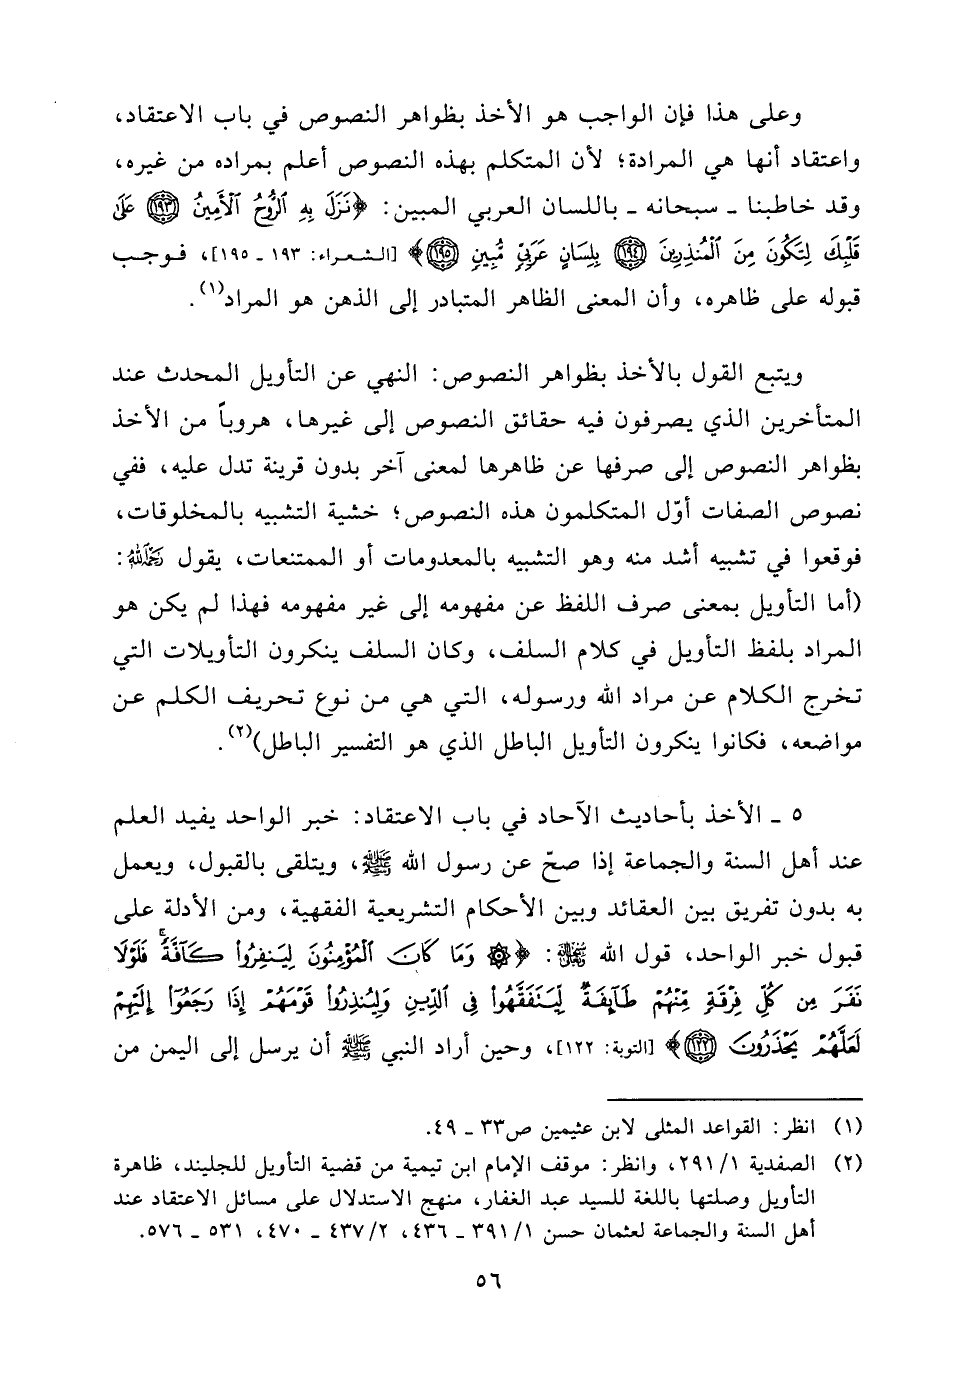 وعلى هذا فإن الواجب هو الأخذ بظواهر النصوص في باب الاعتقاد،
واعتقاد أنها هي المرادة؛ لأن المتكلم بهذه النصوص أعلم بمراده من غيره،
وقد خاطبنا ـ سبحانه ـ باللسان العربي المبين: ﴿نَزَلَ بِهِ ٱلرُّوحُ ٱلْأَمِينُ ۝١٩٣ عَلَىٰ
قَلْبِكَ لِتَكُونَ مِنَ ٱلْمُنذِرِينَ ۝١٩٤ بِلِسَانٍ عَرَبِيٍّ مُّبِينٍ ۝١٩٥﴾ [الشعراء: ١٩٣ ـ ١٩٥]، فوجب
قبوله على ظاهره، وأن المعنى الظاهر المتبادر إلى الذهن هو المراد(١).
ويتبع القول بالأخذ بظواهر النصوص: النهي عن التأويل المحدث عند
المتأخرين الذي يصرفون فيه حقائق النصوص إلى غيرها، هروباً من الأخذ
بظواهر النصوص إلى صرفها عن ظاهرها لمعنى آخر بدون قرينة تدل عليه، ففي
نصوص الصفات أوّل المتكلمون هذه النصوص؛ خشية التشبيه بالمخلوقات،
فوقعوا في تشبيه أشد منه وهو التشبيه بالمعدومات أو الممتنعات، يقول رحمه الله:
(أما التأويل بمعنى صرف اللفظ عن مفهومه إلى غير مفهومه فهذا لم يكن هو
المراد بلفظ التأويل في كلام السلف، وكان السلف ينكرون التأويلات التي
تخرج الكلام عن مراد الله ورسوله، التي هي من نوع تحريف الكلم عن
مواضعه، فكانوا ينكرون التأويل الباطل الذي هو التفسير الباطل)(٢).
٥ ـ الأخذ بأحاديث الآحاد في باب الاعتقاد: خبر الواحد يفيد العلم
عند أهل السنة والجماعة إذا صحّ عن رسول الله ﷺ، ويتلقى بالقبول، ويعمل
به بدون تفريق بين العقائد وبين الأحكام التشريعية الفقهية، ومن الأدلة على
قبول خبر الواحد، قول الله ﷻ: ﴿۞ وَمَا كَانَ ٱلْمُؤْمِنُونَ لِيَنفِرُوا۟ كَآفَّةً ۚ فَلَوْلَا
نَفَرَ مِن كُلِّ فِرْقَةٍ مِّنْهُمْ طَآئِفَةٌ لِّيَتَفَقَّهُوا۟ فِى ٱلدِّينِ وَلِيُنذِرُوا۟ قَوْمَهُمْ إِذَا رَجَعُوٓا۟ إِلَيْهِمْ
لَعَلَّهُمْ يَحْذَرُونَ ۝١٢٢﴾ [التوبة: ١٢٢]، وحين أراد النبي ﷺ أن يرسل إلى اليمن من
(١) انظر: القواعد المثلى لابن عثيمين ص٣٣ ـ ٤٩.
(٢) الصفدية ٢٩١/١، وانظر: موقف الإمام ابن تيمية من قضية التأويل للجليند، ظاهرة
التأويل وصلتها باللغة للسيد عبد الغفار، منهج الاستدلال على مسائل الاعتقاد عند
أهل السنة والجماعة لعثمان حسن ٣٩١/١ ـ ٤٣٦، ٤٣٧/٢ ـ ٤٧٠، ٥٣١ ـ ٥٧٦.
٥٦